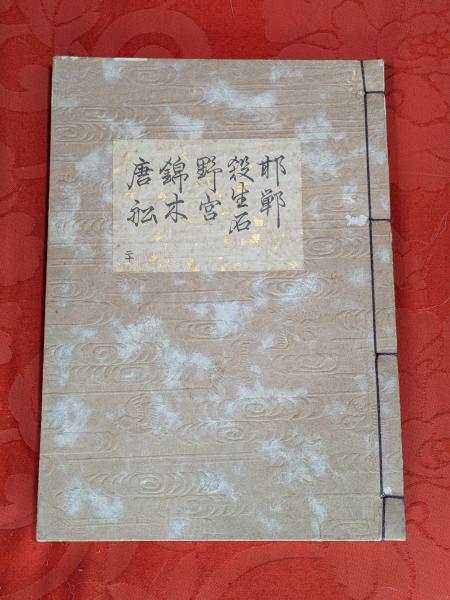 邯鄲
殺生石
野宮
錦木
唐船
二十